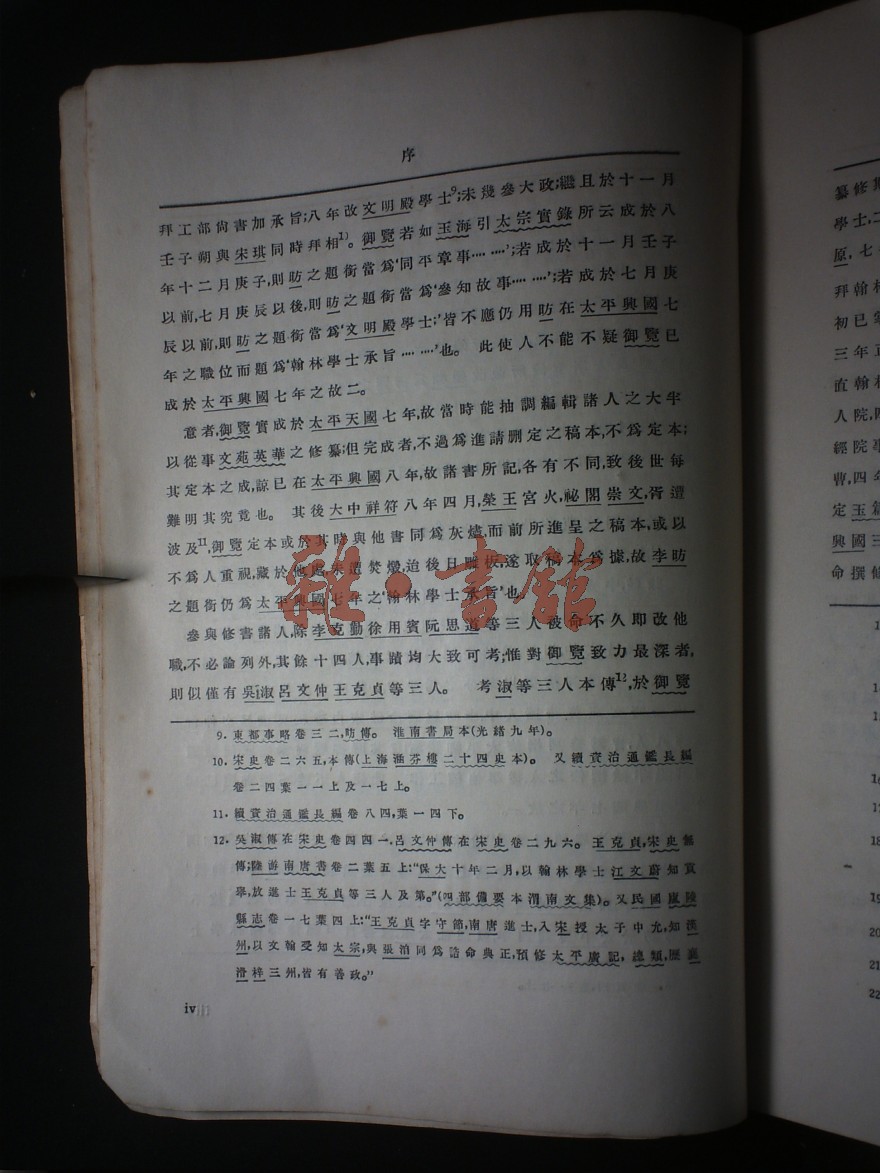 序
拜工部尙書加承旨;八年改文明殿學士⁹;未幾參大政;繼且於十一月
壬子朔與宋琪同時拜相¹⁾。御覽若如玉海引太宗實錄所云成於八
年十二月庚子,則昉之題銜當爲‘同平章事……’;若成於十一月壬子
以前,七月庚辰以後,則昉之題銜當爲‘參知故事……’;若成於七月庚
辰以前,則昉之題銜當爲‘文明殿學士;’皆不應仍用昉在太平興國七
年之職位而題爲‘翰林學士承旨……’也。 此使人不能不疑御覽已
成於太平興國七年之故二。
意者,御覽實成於太平天國七年,故當時能抽調編輯諸人之大半
以從事文苑英華之修纂;但完成者,不過爲進請删定之稿本,不爲定本;
其定本之成,諒已在太平興國八年,故諸書所記,各有不同,致後世每
難明其究竟也。 其後大中祥符八年四月,榮王宮火,祕閣崇文,胥遭
波及¹¹,御覽定本或於其時與他書同爲灰燼,而前所進呈之稿本,或以
不爲人重視,藏於他處,未遭焚燬,迨後日雕板,遂取稿本爲據,故李昉
之題銜仍爲太平興國七年之‘翰林學士承旨’也。
參與修書諸人,除李克勤徐用賓阮思道等三人被命不久即改他
職,不必論列外,其餘十四人,事蹟均大致可考;惟對御覽致力最深者,
則似僅有吳淑呂文仲王克貞等三人。 考淑等三人本傳¹²,於御覽
9. 東都事略卷三二,昉傳。 淮南書局本(光緖九年)。
10. 宋史卷二六五,本傳(上海涵芬樓二十四史本)。 又續資治通鑑長編
卷二四葉一一上及一七上。
11. 續資治通鑑長編卷八四,葉一四下。
12. 吳淑傳在宋史卷四四一.呂文仲傳在宋史卷二九六。 王克貞,宋史無
傳;陸游南唐書卷二葉五上:“保大十年二月,以翰林學士江文蔚知貢
擧,放進士王克貞等三人及第。”(四部備要本渭南文集)。又民國廬陵
縣志卷一七葉四上:“王克貞字守節,南唐進士,入宋授太子中允,知漢
州,以文翰受知太宗,與張洎同爲誥命典正,預修太平廣記,總類,歷襄
滑梓三州,皆有善政。”
iv
雜·書舘
纂修
學士,二
原,七
拜翰林
初已
三年正
直翰林
人院,四
經院事
曹,四年
定玉篇
興國三
命撰
1
14
15
16
17
18
19
20
21
22